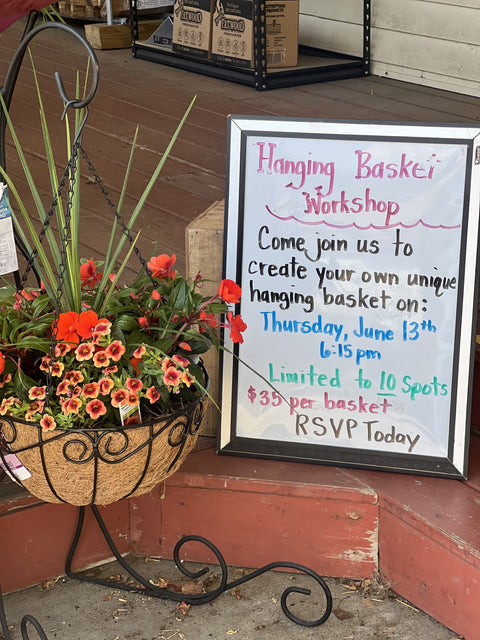 Hanging Basket
Workshop
Come join us to
create your own unique
hanging basket on:
Thursday, June 13th
6:15 pm
Limited to 10 Spots
$35 per basket
RSVP Today